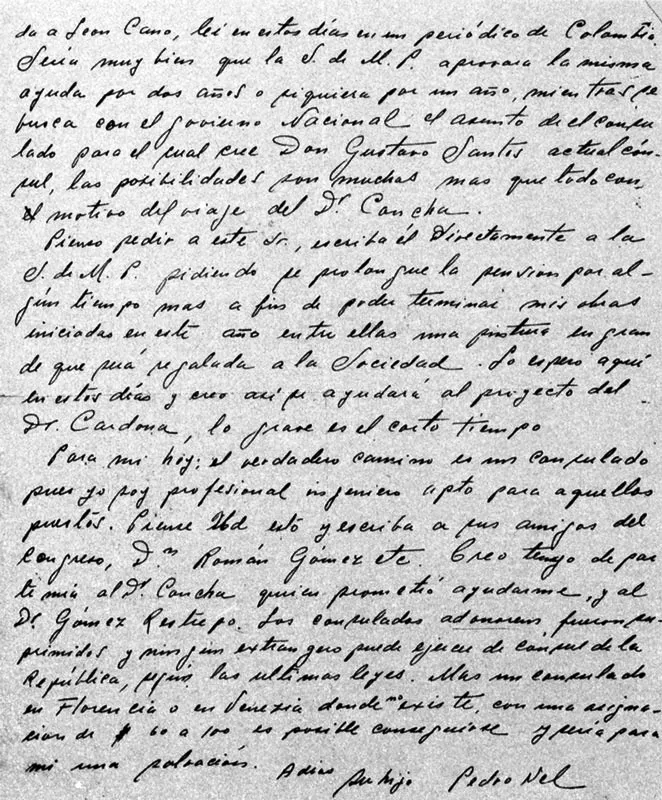 da a Leon Cano, lei en estos días en un periódico de Colombia.
Sería muy bien que la S. de M. P. aprovara la misma
ayuda por dos años o siquiera por un año, mientras se
busca con el govierno Nacional el asunto de el consu-
lado para el cual cree Don Gustavo Santos actual cón-
sul, las posibilidades son muchas mas que todo con
el motivo del viaje del Dr. Concha.
Pienso pedir a este Sr., escriba él Directamente a la
S. de M. P. pidiendo se prolongue la pension por al-
gún tiempo mas a fin de poder terminar mis obras
iniciadas en este año entre ellas una pintura en gran
de que será regalada a la Sociedad. Lo espero aquí
en estos días y creo asi se ayudará al proyecto del
Dr. Cardona, lo grave es el corto tiempo
Para mi hoy; el verdadero camino es un consulado
pues yo soy profesional ingeniero apto para aquellos
puestos. Piense Ud esto y escriba a sus amigos del
Congreso, D.n Román Gómez etc. Creo tengo de par
te mia al Dr. Concha quien prometió ayudarme, y al
Dr. Gómez Restrepo. Los consulados adonorem fueron su-
primidos y ningún extrangero puede ejercer de cónsul de la
República, según las ultimas leyes. Mas un consulado
en Florencia o en Venezia donde no existe, con una asigna-
cion de $ 60 a 100 es posible conseguirse y sería para
mi una salvación.
Adios
Su hijo Pedro Nel